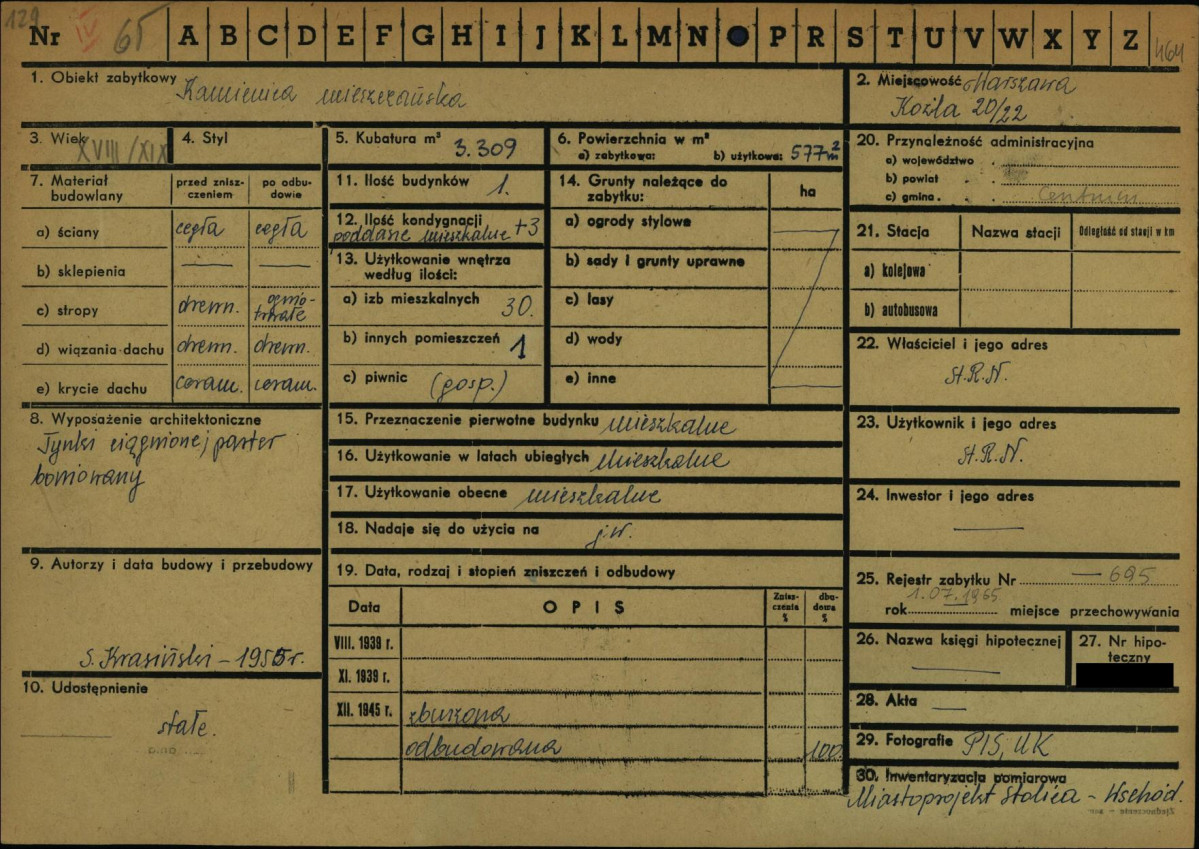 129
Nr IV 65 A B C D E F G H I J K L M N P R S T U V W X Y Z 464
1. Obiekt zabytkowy Kamienica mieszczańska
2. Miejscowość Warszawa
Koźla 20/22
3. Wiek XVIII/XIX
4. Styl
5. Kubatura m³ 3.309
6. Powierzchnia w m²
a) zabytkowa: b) użytkowa: 577 m²
7. Materiał budowlany
przed zniszczeniem
po odbudowie
a) ściany cegła cegła
b) sklepienia — —
c) stropy drewn. ogniotrwałe
d) wiązania dachu drewn. drewn.
e) krycie dachu ceram. ceram.
8. Wyposażenie architektoniczne
Tynki ciągnione, parter
boniowany
9. Autorzy i data budowy i przebudowy
S. Krasiński – 1955 r.
10. Udostępnienie
stałe.
11. Ilość budynków 1.
12. Ilość kondygnacji
poddasze mieszkalne +3
13. Użytkowanie wnętrza
według ilości:
a) izb mieszkalnych 30.
b) innych pomieszczeń 1
c) piwnic (gosp.)
14. Grunty należące do
zabytku:
ha
a) ogrody stylowe
b) sady i grunty uprawne
c) lasy
d) wody
e) inne
15. Przeznaczenie pierwotne budynku mieszkalne
16. Użytkowanie w latach ubiegłych mieszkalne
17. Użytkowanie obecne mieszkalne
18. Nadaje się do użycia na j.w.
19. Data, rodzaj i stopień zniszczeń i odbudowy
Data OPIS Zniszczenia % dbudowa %
VIII. 1939 r.
XI. 1939 r.
XII. 1945 r. zburzona
odbudowana 100
20. Przynależność administracyjna
a) województwo
b) powiat
c) gmina
21. Stacja Nazwa stacji Odległość od stacji w km
a) kolejowa
b) autobusowa
22. Właściciel i jego adres
St.R.N.
23. Użytkownik i jego adres
St.R.N.
24. Inwestor i jego adres
—
25. Rejestr zabytku Nr — 695
1.07.1965
rok miejsce przechowywania
26. Nazwa księgi hipotecznej
—
27. Nr hipoteczny
28. Akta —
29. Fotografie PIS, UK
30. Inwentaryzacja pomiarowa
Miastoprojekt Stolica – Wschód.